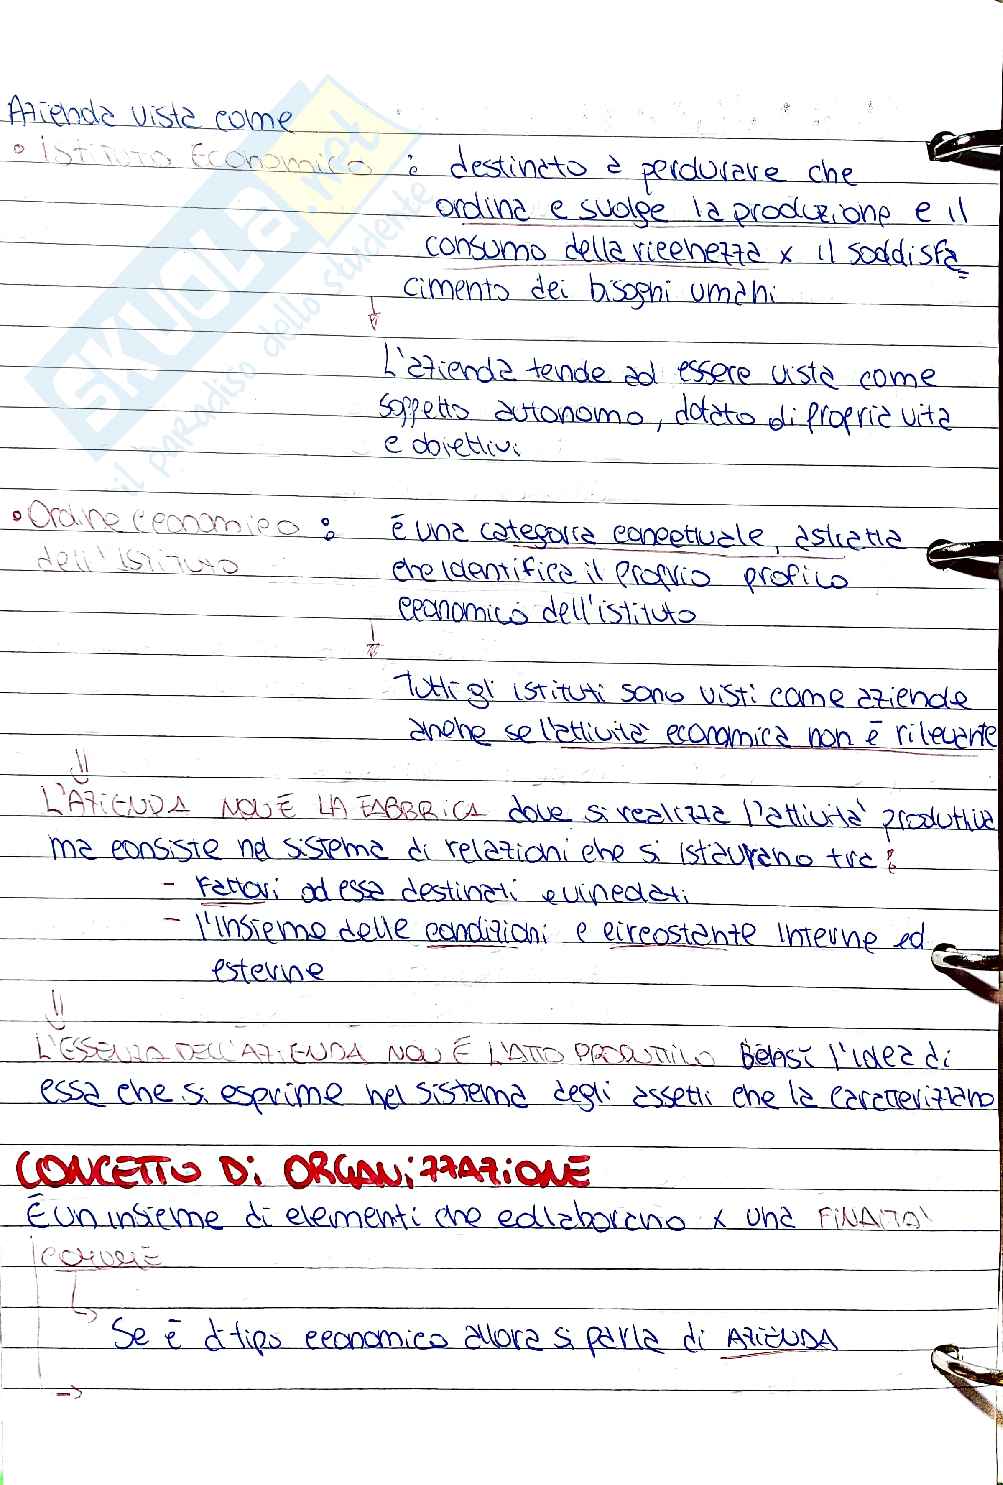 Azienda vista come
• Istituto Economico : destinato a perdurare che
ordina e svolge la produzione e il
consumo della ricchezza x il soddisfa
cimento dei bisogni umani
L'azienda tende ad essere vista come
soggetto autonomo, dotato di propria vita
e obiettivi
• Ordine economico : è una categoria concettuale, astratta
dell'istituto che identifica il proprio profilo
economico dell'istituto
Tutti gli istituti sono visti come aziende
anche se l'attività economica non è rilevante
L'AZIENDA NON È LA FABBRICA dove si realizza l'attività produttiva
ma consiste nel sistema di relazioni che si istaurano tra:
- Fattori ad essa destinati e vincolati
- l'insieme delle condizioni e circostante interne ed
esterne
L'ESSENZA DELL'AZIENDA NON È L'ATTO PRODUTTIVO Bensì l'idea di
essa che si esprime nel sistema degli assetti che la caratterizzano
CONCETTO DI ORGANIZZAZIONE
È un insieme di elementi che collaborano x una FINALITÀ
COMUNE
Se è di tipo economico allora si parla di AZIENDA
SKUOLA.net
il paradiso dello studente